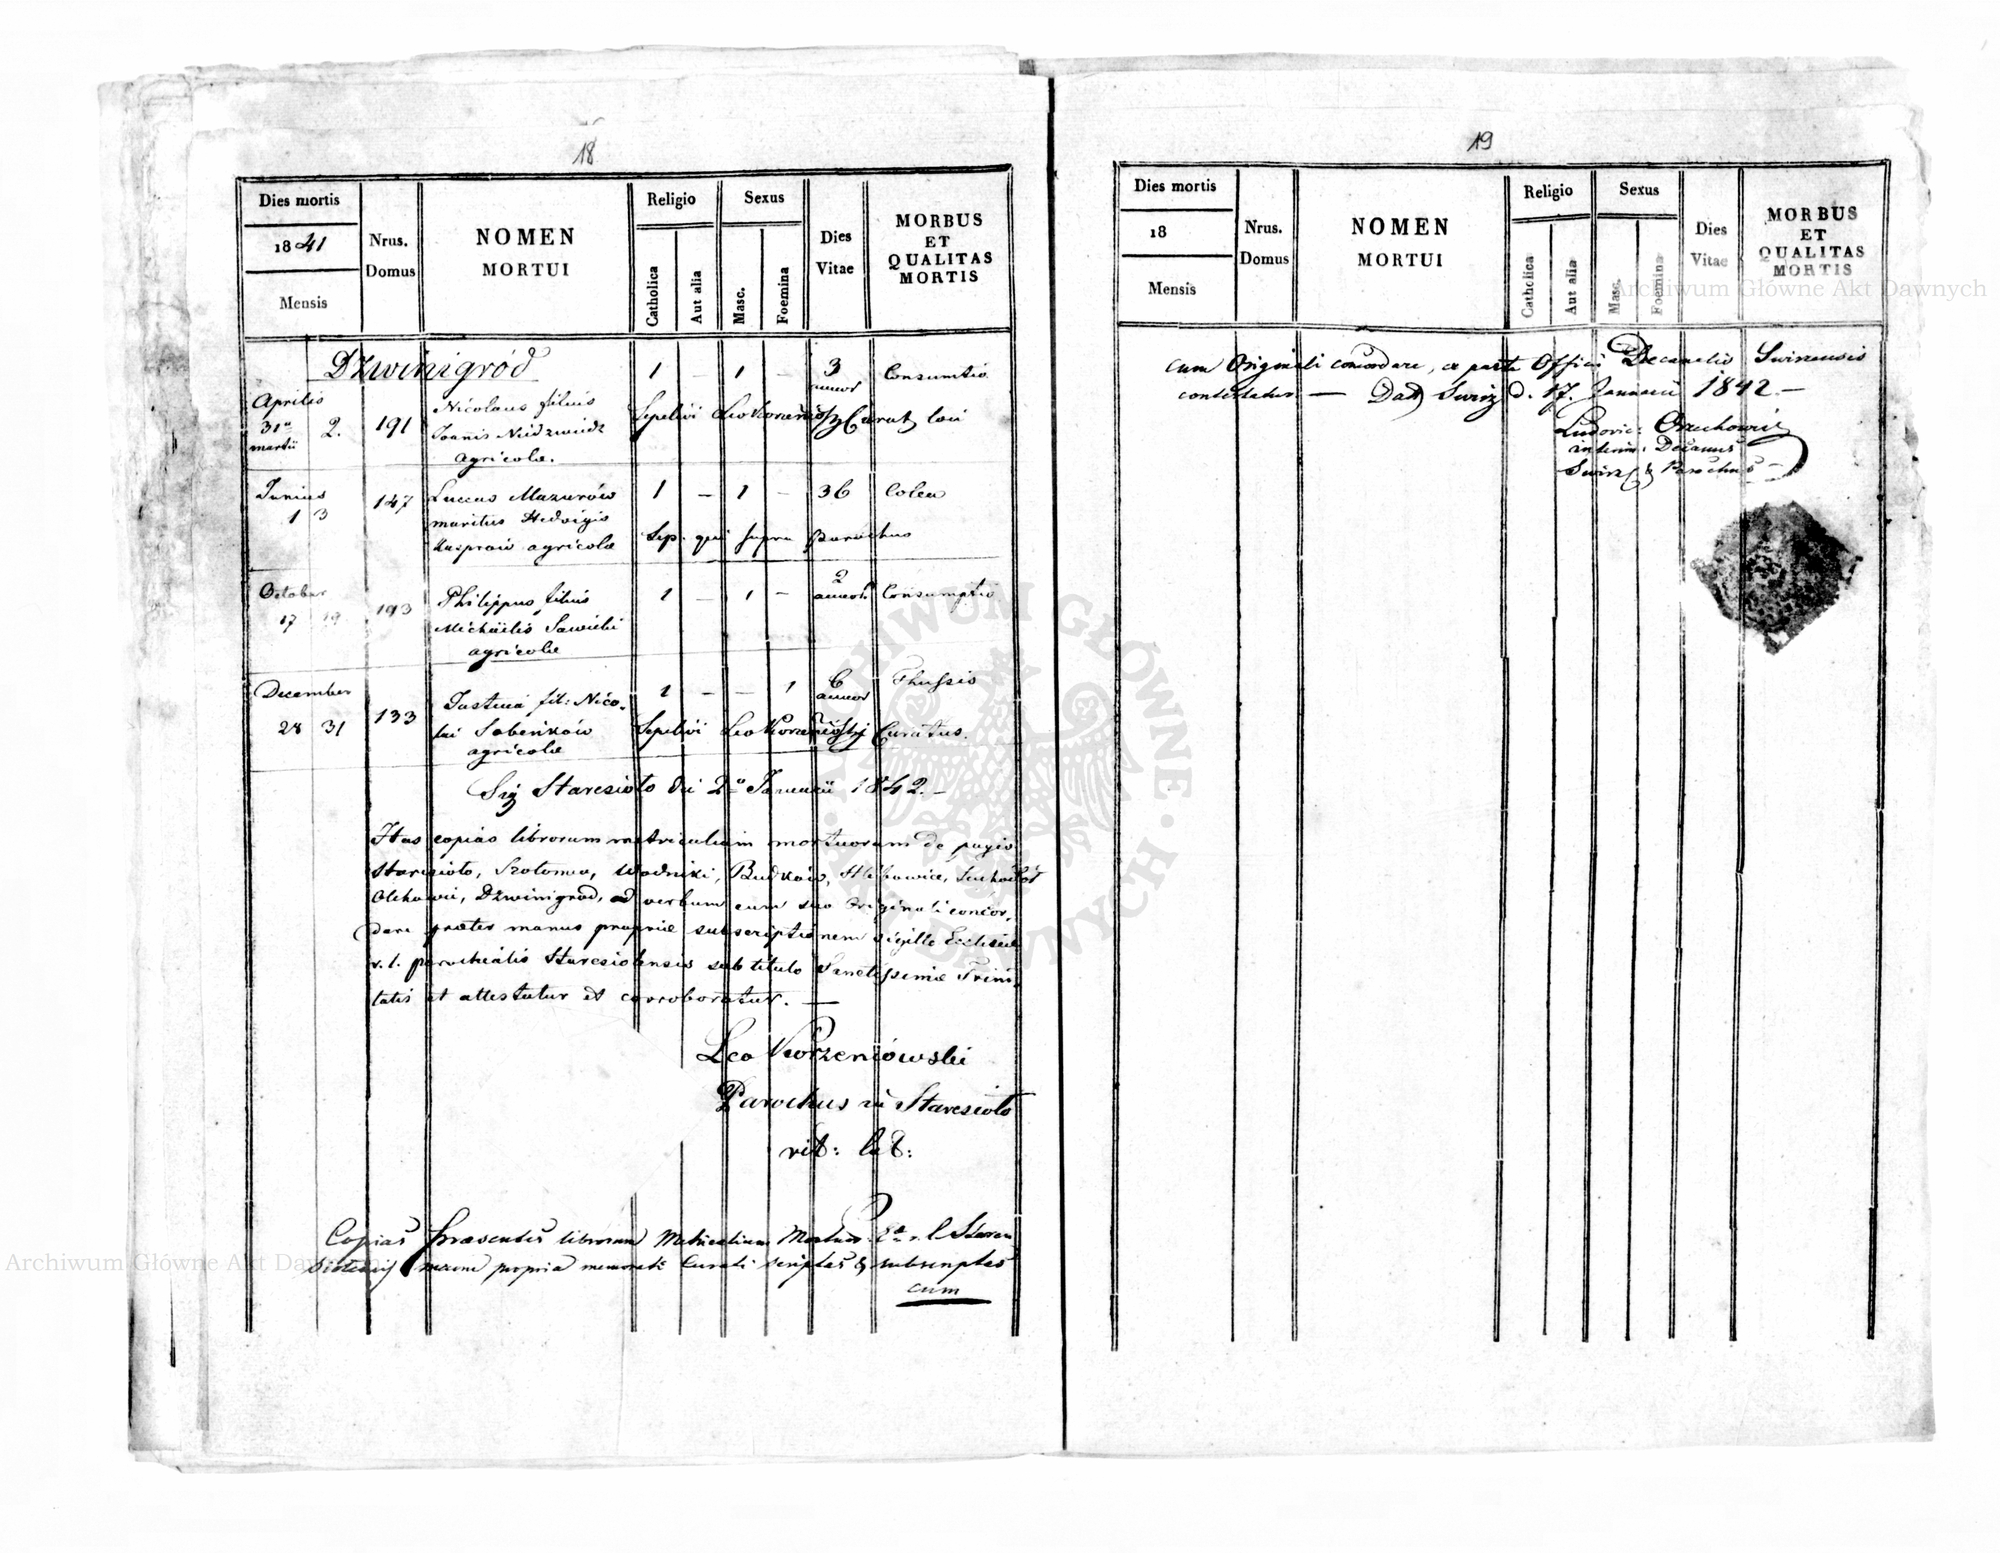 18
Dies mortis
1841
Mensis
Nrus.
Domus
NOMEN
MORTUI
Religio
Catholica
Aut alia
Sexus
Masc.
Foemina
Dies
Vitae
MORBUS
ET
QUALITAS
MORTIS
Dźwinigród
Aprilis
31a
martii
2.
191
Nicolaus filius
Joannis Niedzwiedz
agricolae.
1 – 1 –
3
annor
Consumtio
Sepelivi Leo Korzeniowski Curat loci
Junius
1 3
147
Luccas Mazurów
maritus Hedvigis
Kasprów agricola
1 – 1 – 36
Colera
Sep. qui supra Parochus
October
17 19
193
Philippus filius
Michaelis Sawicki
agricolae
1 – 1 –
2
annor
Consumptio
December
28 31
133
Justina fil: Nico-
lai Sobenków
agricolae
1 – – 1
6
annor
Thussis
Sepelivi Leo Korzeniowski Curatus.
Sig Staresioło die 2a Januarii 1842. –
Has copias librorum metricalium mortuorum de pagis
Staresioło, Szołomia, Wodniki, Budków, Hlibowice, Suchodół
Olchowic, Dźwinigród, ad verbum cum suo Originali concor-
dare praeter manus propriae subscriptionem sigillo Ecclesiae
r. l. parochialis Staresiolensis sub titulo Sanctissimae Trini-
tatis et attestatur et corroboratur. —
Leo Korzeniowski
Parochus in Staresioło
rit: lat:
Copias praesentes librorum Metricalium Mortuor: Eae r. l. Stare
siolensis manu propria memorati Curati scriptas & subscriptas
cum
19
Dies mortis
18
Mensis
Nrus.
Domus
NOMEN
MORTUI
Religio
Catholica
Aut alia
Sexus
Masc.
Foemina
Dies
Vitae
MORBUS
ET
QUALITAS
MORTIS
cum Originali concordare, ex parte Officii Decanalis Swirzensis
contestatur — Datt Swirz d. 17. Januarii 1842 –
Ludovic: Orzechowicz
interim: Decanus
Swirz & Parochus –
Archiwum Główne Akt Dawnych
ARCHIWUM GŁÓWNE · AKT DAWNYCH ·
Archiwum Główne Akt Dawnych